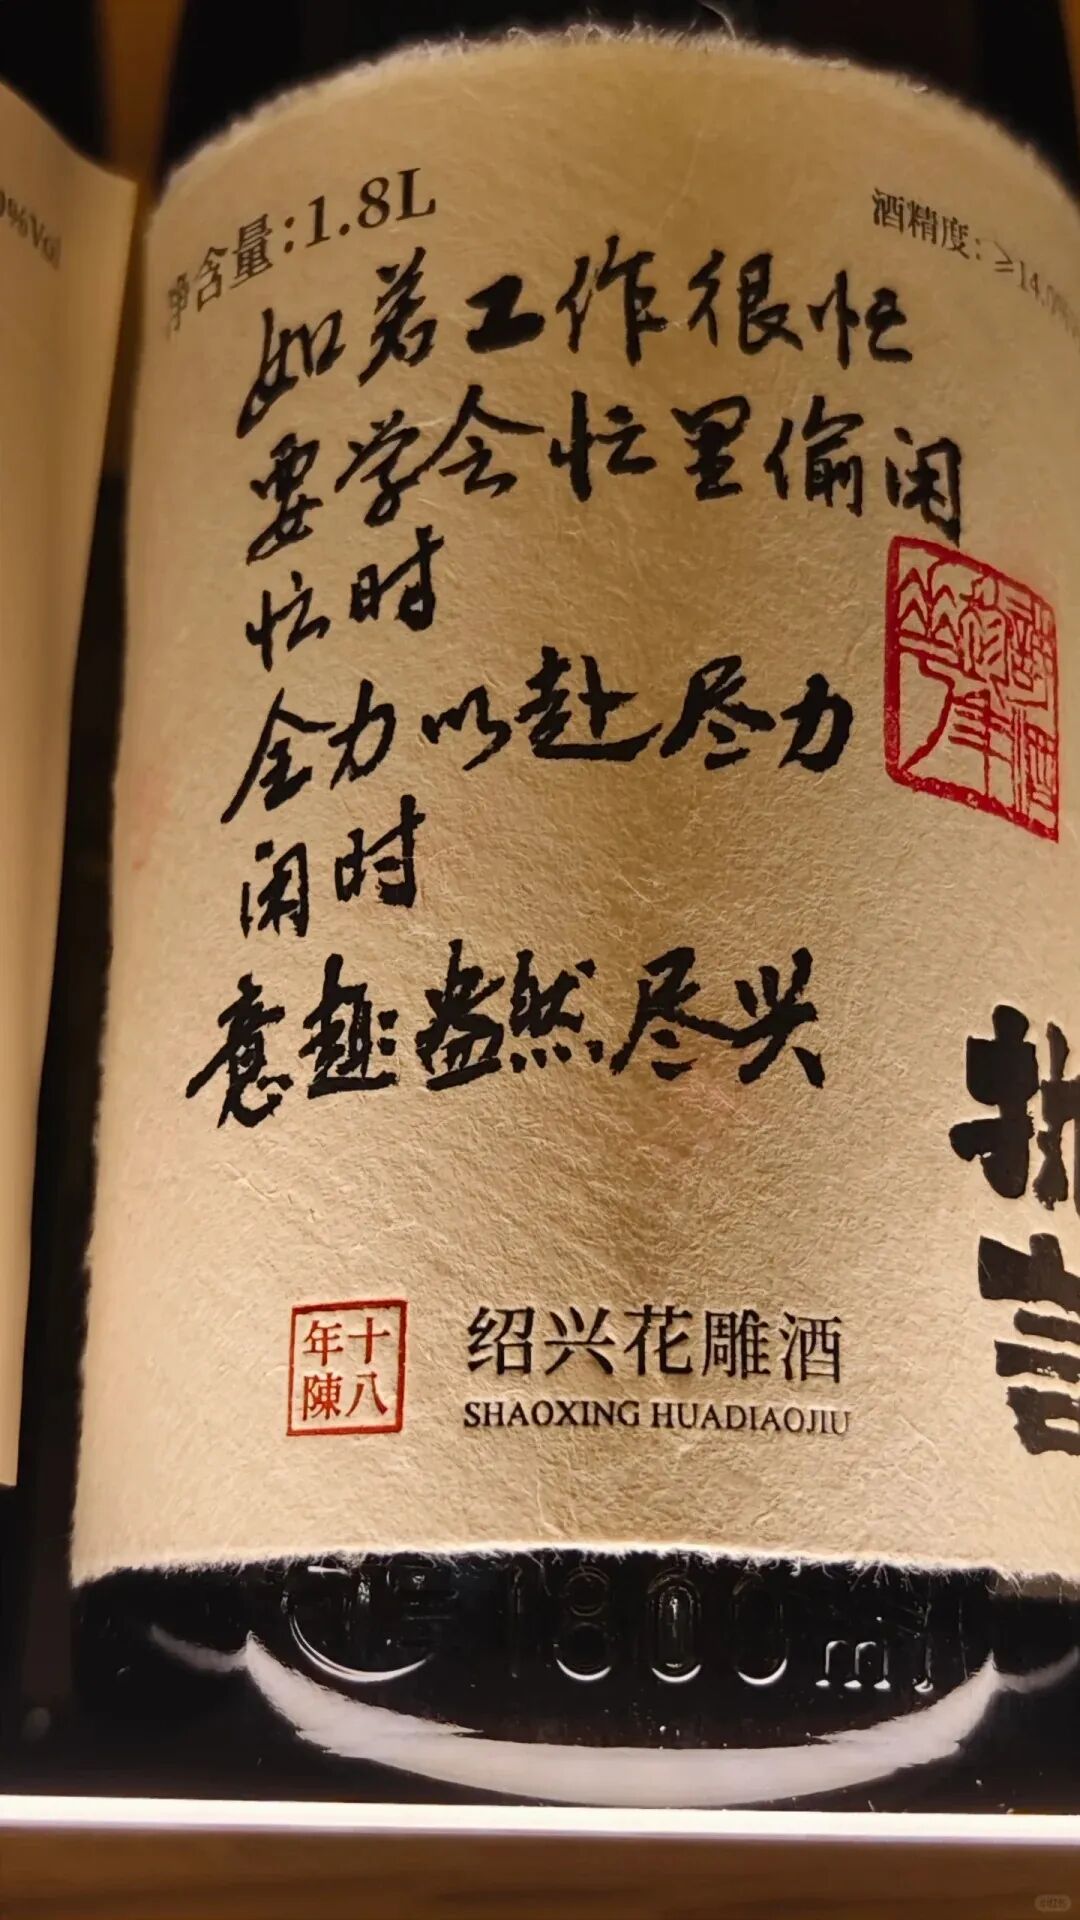 净含量:1.8L
酒精度:≥14.0%
如若工作很忙
要学会忙里偷闲
忙时
全力以赴尽力
闲时
意趣盎然尽兴
十八
年陳
绍兴花雕酒
SHAOXING HUADIAOJIU
1800ml
0%Vol